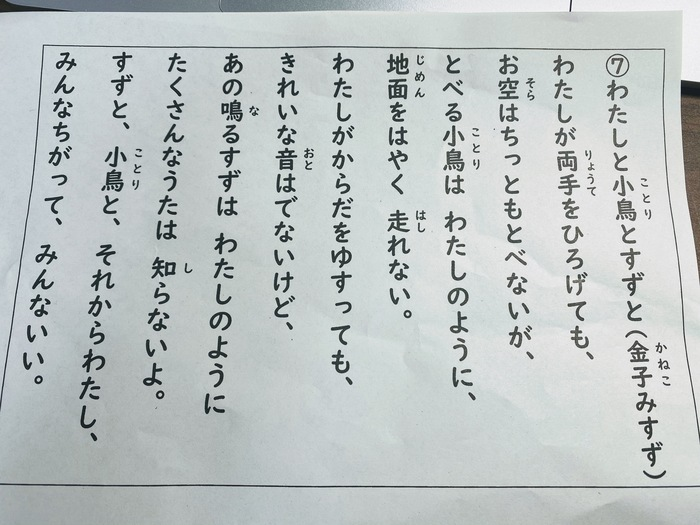 ⑦わたしと小鳥とすずと（金子みすず）
わたしが両手をひろげても、
お空はちっともとべないが、
とべる小鳥は わたしのように、
地面をはやく 走れない。
わたしがからだをゆすっても、
きれいな音はでないけど、
あの鳴るすずは わたしのように
たくさんなうたは 知らないよ。
すずと、小鳥と、それからわたし、
みんなちがって、みんないい。